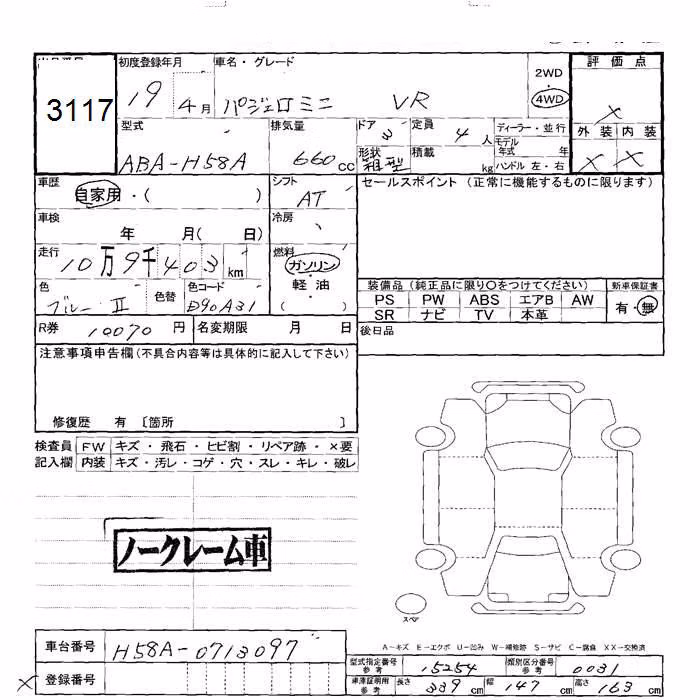 3117
初度登録年月 車名・グレード 評価点
19 4月 パジェロミニ VR 2WD 4WD X
型式 排気量 ドア 定員 ディーラー・並行 外装 内装
ABA-H58A 660cc 3 4人 モデル年式 年
形状 積載 箱型 kg ハンドル 左・右 X X
車歴 シフト セールスポイント (正常に機能するものに限ります)
自家用・( ) AT
車検 冷房
年 月( 日)
走行 燃料
10万9千403km ガソリン・軽油・( )
色 色替 色コード 装備品 (純正品に限り○をつけてください) 新車保証書
ブルーII D90A31 PS PW ABS エアB AW 有・無
SR ナビ TV 本革
R券 10070円 名変期限 月 日 後日品
注意事項申告欄(不具合内容等は具体的に記入して下さい)
修復歴 有 〔箇所 〕
検査員 FW キズ・飛石・ヒビ割・リペア跡・×要
記入欄 内装 キズ・汚レ・コゲ・穴・スレ・キレ・破レ
ノークレーム車
スペア
A-キズ E-エクボ U-凹み W-補修跡 S-サビ C-腐食 XX-交換済
車台番号 H58A-0713097
型式指定番号 参考 15254 類別区分番号 参考 0031
X 登録番号
車庫証明用 参考 長さ 339cm 幅 147cm 高さ 163cm